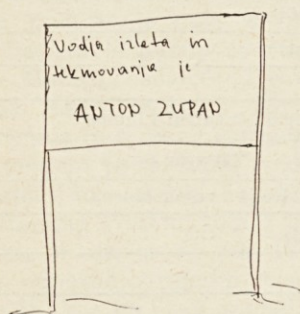 Vodja izleta in
tekmovanja je
ANTON ZUPAN